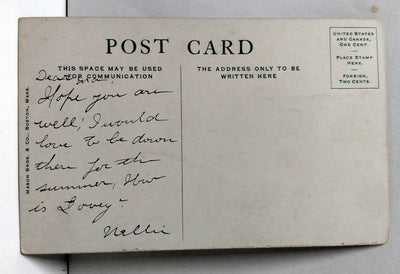 POST CARD
THIS SPACE MAY BE USED
FOR COMMUNICATION
THE ADDRESS ONLY TO BE
WRITTEN HERE
UNITED STATES
AND CANADA,
ONE CENT.
PLACE STAMP
HERE.
FOREIGN,
TWO CENTS.
MASON BROS. & CO., BOSTON, MASS.
Dear
Hope you are
well; I would
love to be down
there for the
summer, How
is Dovey?
Nellie